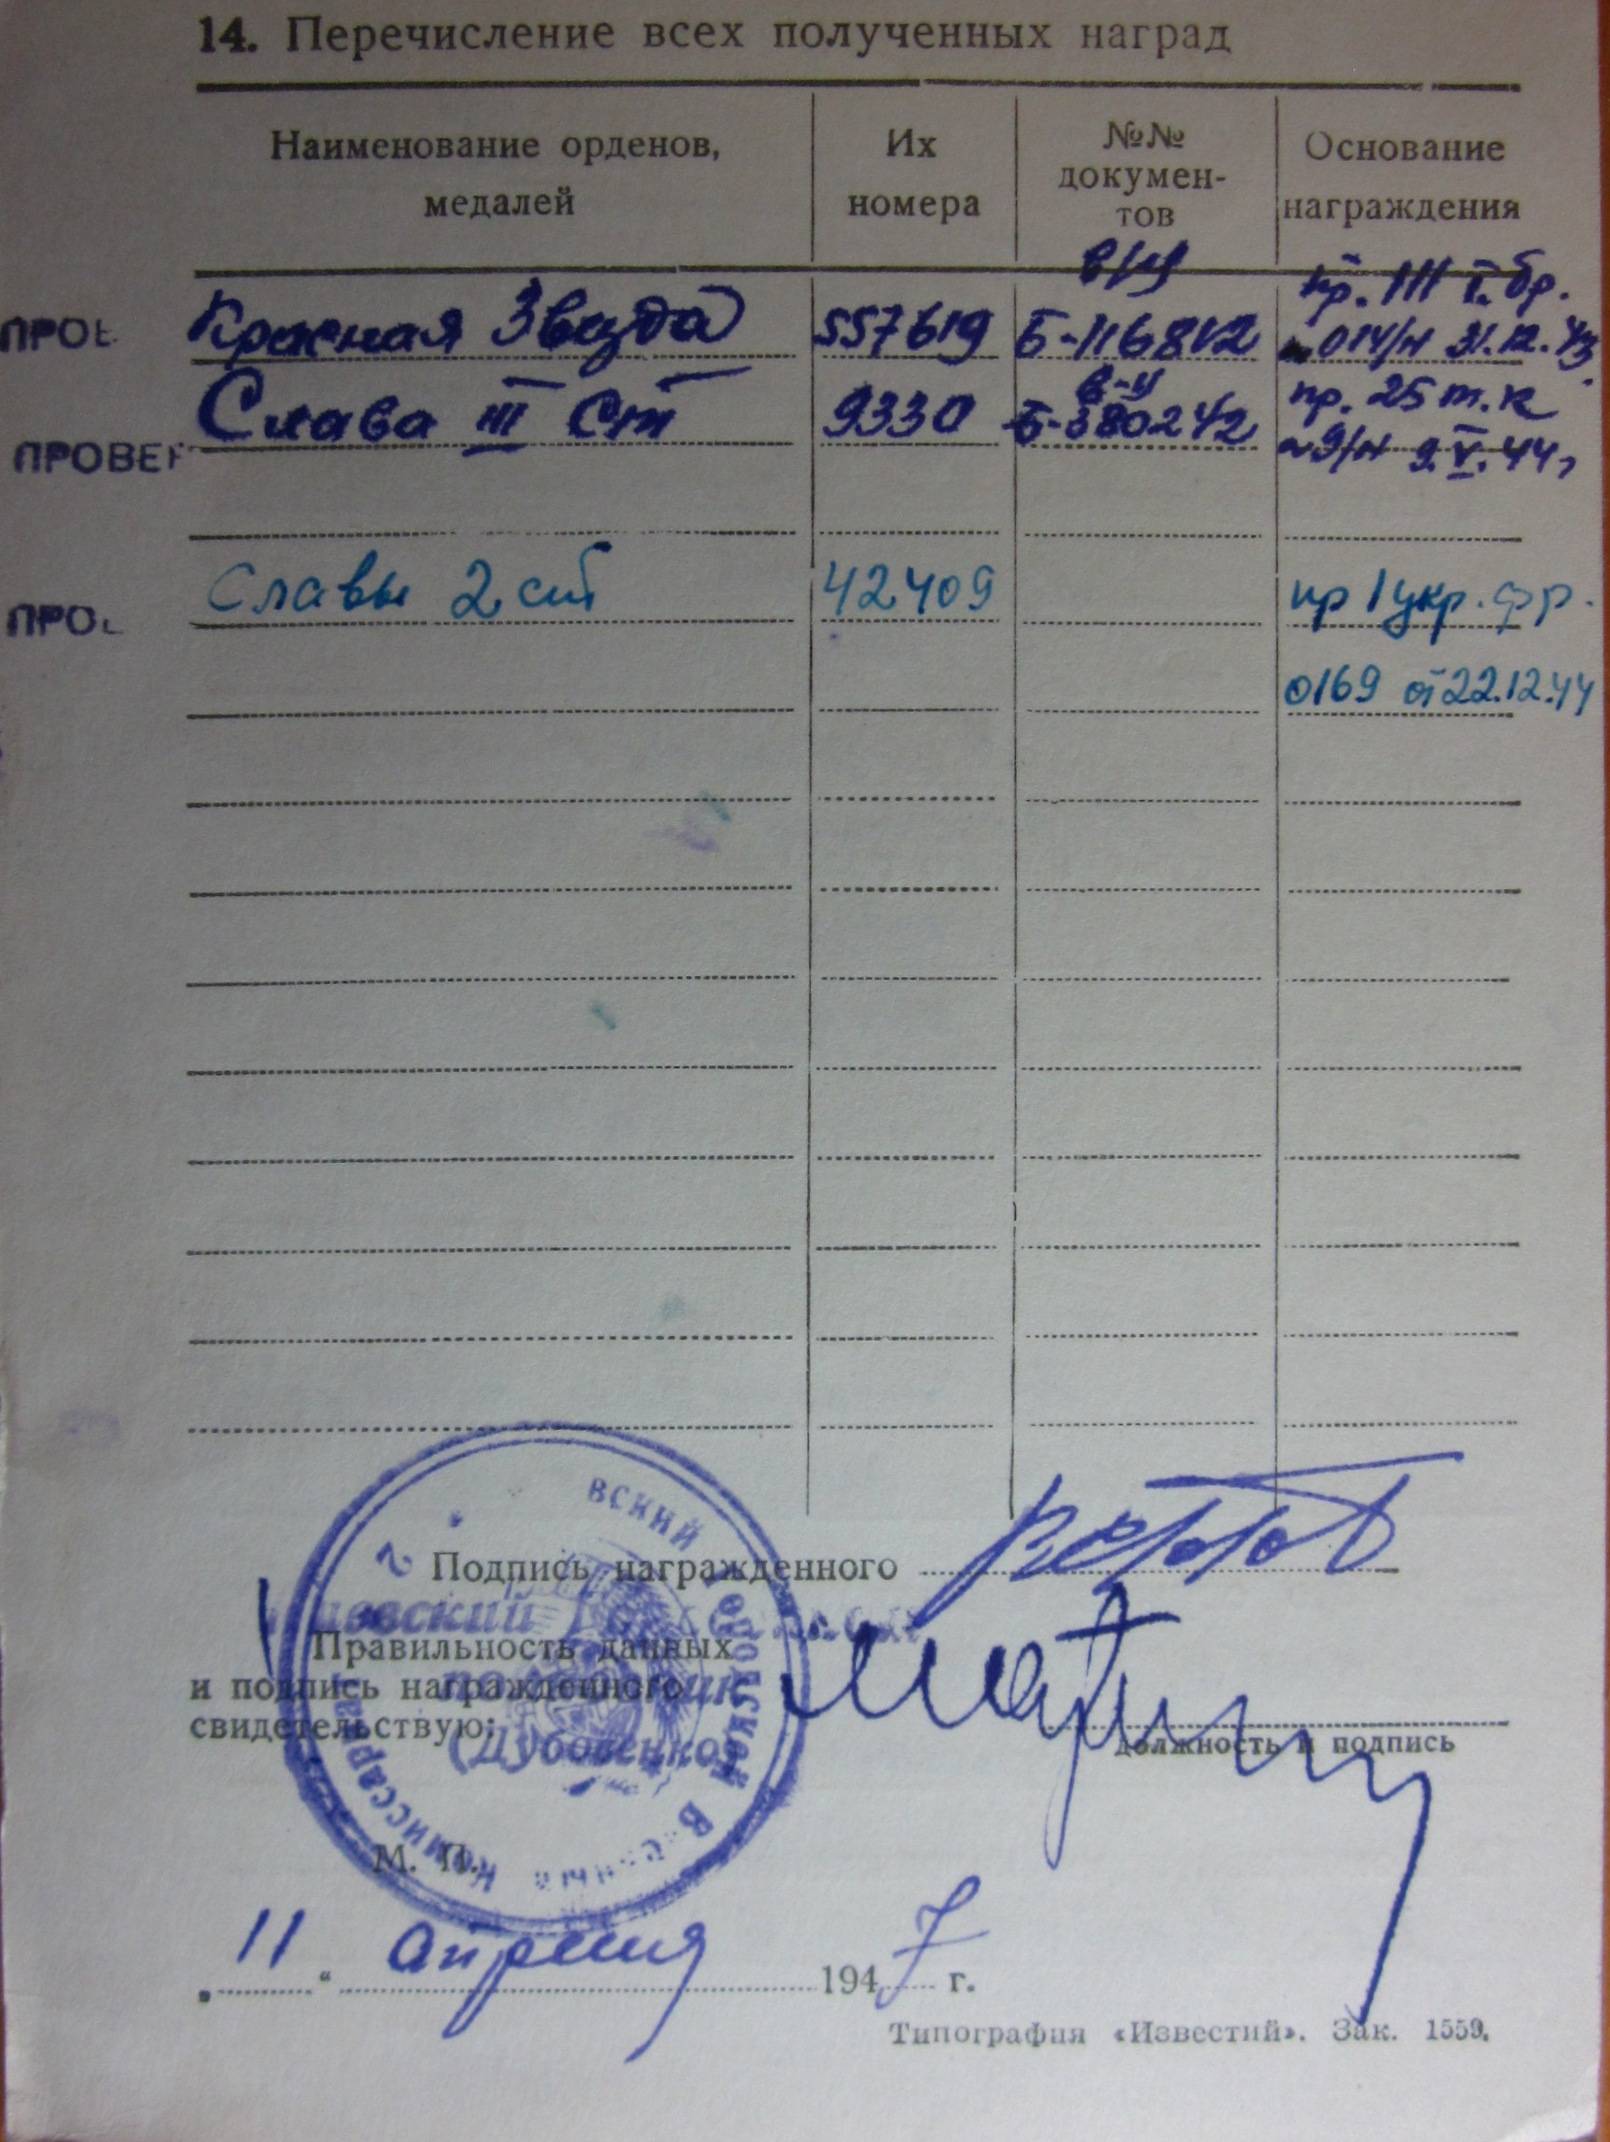 14. Перечисление всех полученных наград
Наименование орденов, медалей
Их номера
№№ докумен-
тов
Основание награждения
в/у
пр. 111 т. бр.
ПРОВ Красная Звезда 557619 Б-116812 014/н 31.12.43
в-у
пр. 25 т.к
ПРОВЕР Слава III ст 9330 Б-380242 9/н 9.V.44г
ПРО Славы 2 ст 42409 пр 1 укр. фр.
0169 от 22.12.44
Подпись награжденного
Правильность данных
и подпись награжденного
свидетельствую:
(Дубовенко)
должность и подпись
вский Городской Военный Комиссариат
2
М. П.
„11“ апреля 1947 г.
Типография «Известий». Зак. 1559.